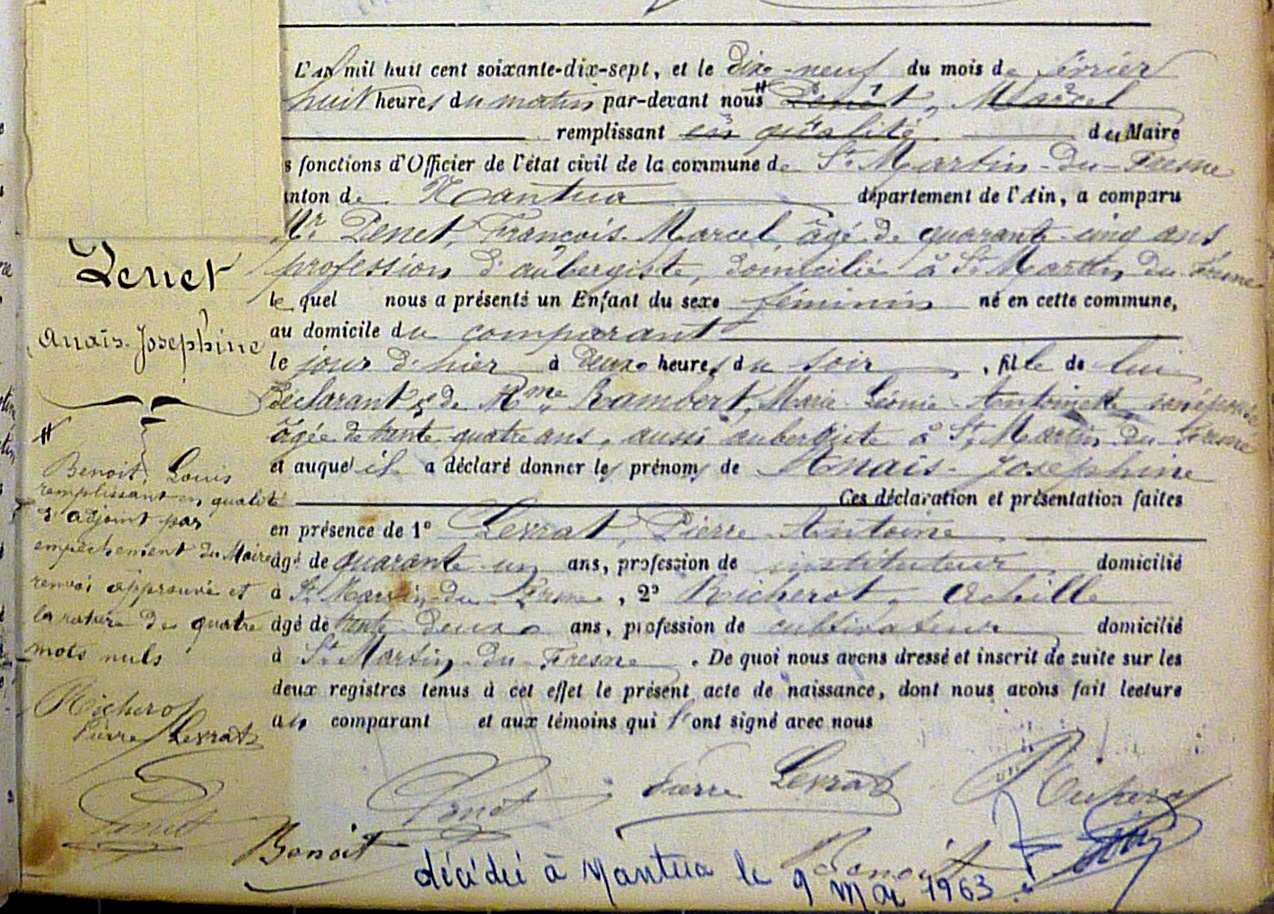 L'an mil huit cent soixante-dix-sept, et le dix-neuf du mois de février
huit heures du matin par-devant nous # Penet, Marcel
remplissant en qualité de Maire
s fonctions d'Officier de l'état civil de la commune de St Martin-du-Fresne
anton de Nantua département de l'Ain, a comparu
Mr Penet, François-Marcel, âgé de quarante-cinq ans,
profession d'aubergiste, domicilié à St Martin du Fresne
le quel nous a présenté un Enfant du sexe féminin né en cette commune,
au domicile du comparant
le jour d'hier à deux heures du soir, fille de lui
déclarant, & de Mme Rambert, Marie Léonie Antoinette son épouse
âgée de trente-quatre ans, aussi aubergiste à St Martin du Fresne
et auquel il a déclaré donner les prénoms de Anaïs-Joséphine
Ces déclaration et présentation faites
en présence de 1° Levrat, Pierre Antoine
âgé de quarante un ans, profession de instituteur domicilié
à St Martin du Fresne, 2° Richerot, Achille
âgé de trente deux ans, profession de cultivateur domicilié
à St Martin du Fresne. De quoi nous avons dressé et inscrit de suite sur les
deux registres tenus à cet effet le présent acte de naissance, dont nous avons fait lecture
au comparant et aux témoins qui l'ont signé avec nous
Penet
Anaïs-Joséphine
#
Benoit, Louis
remplissant en qualité
d'adjoint par
empêchement du Maire
renvoi approuvé et
la rature de quatre
mots nuls
Richerot
Pierre Levrat
Penet
Benoit
Penet
Pierre Levrat
Richerot
Benoit
décédée à Nantua le 9 mai 1963